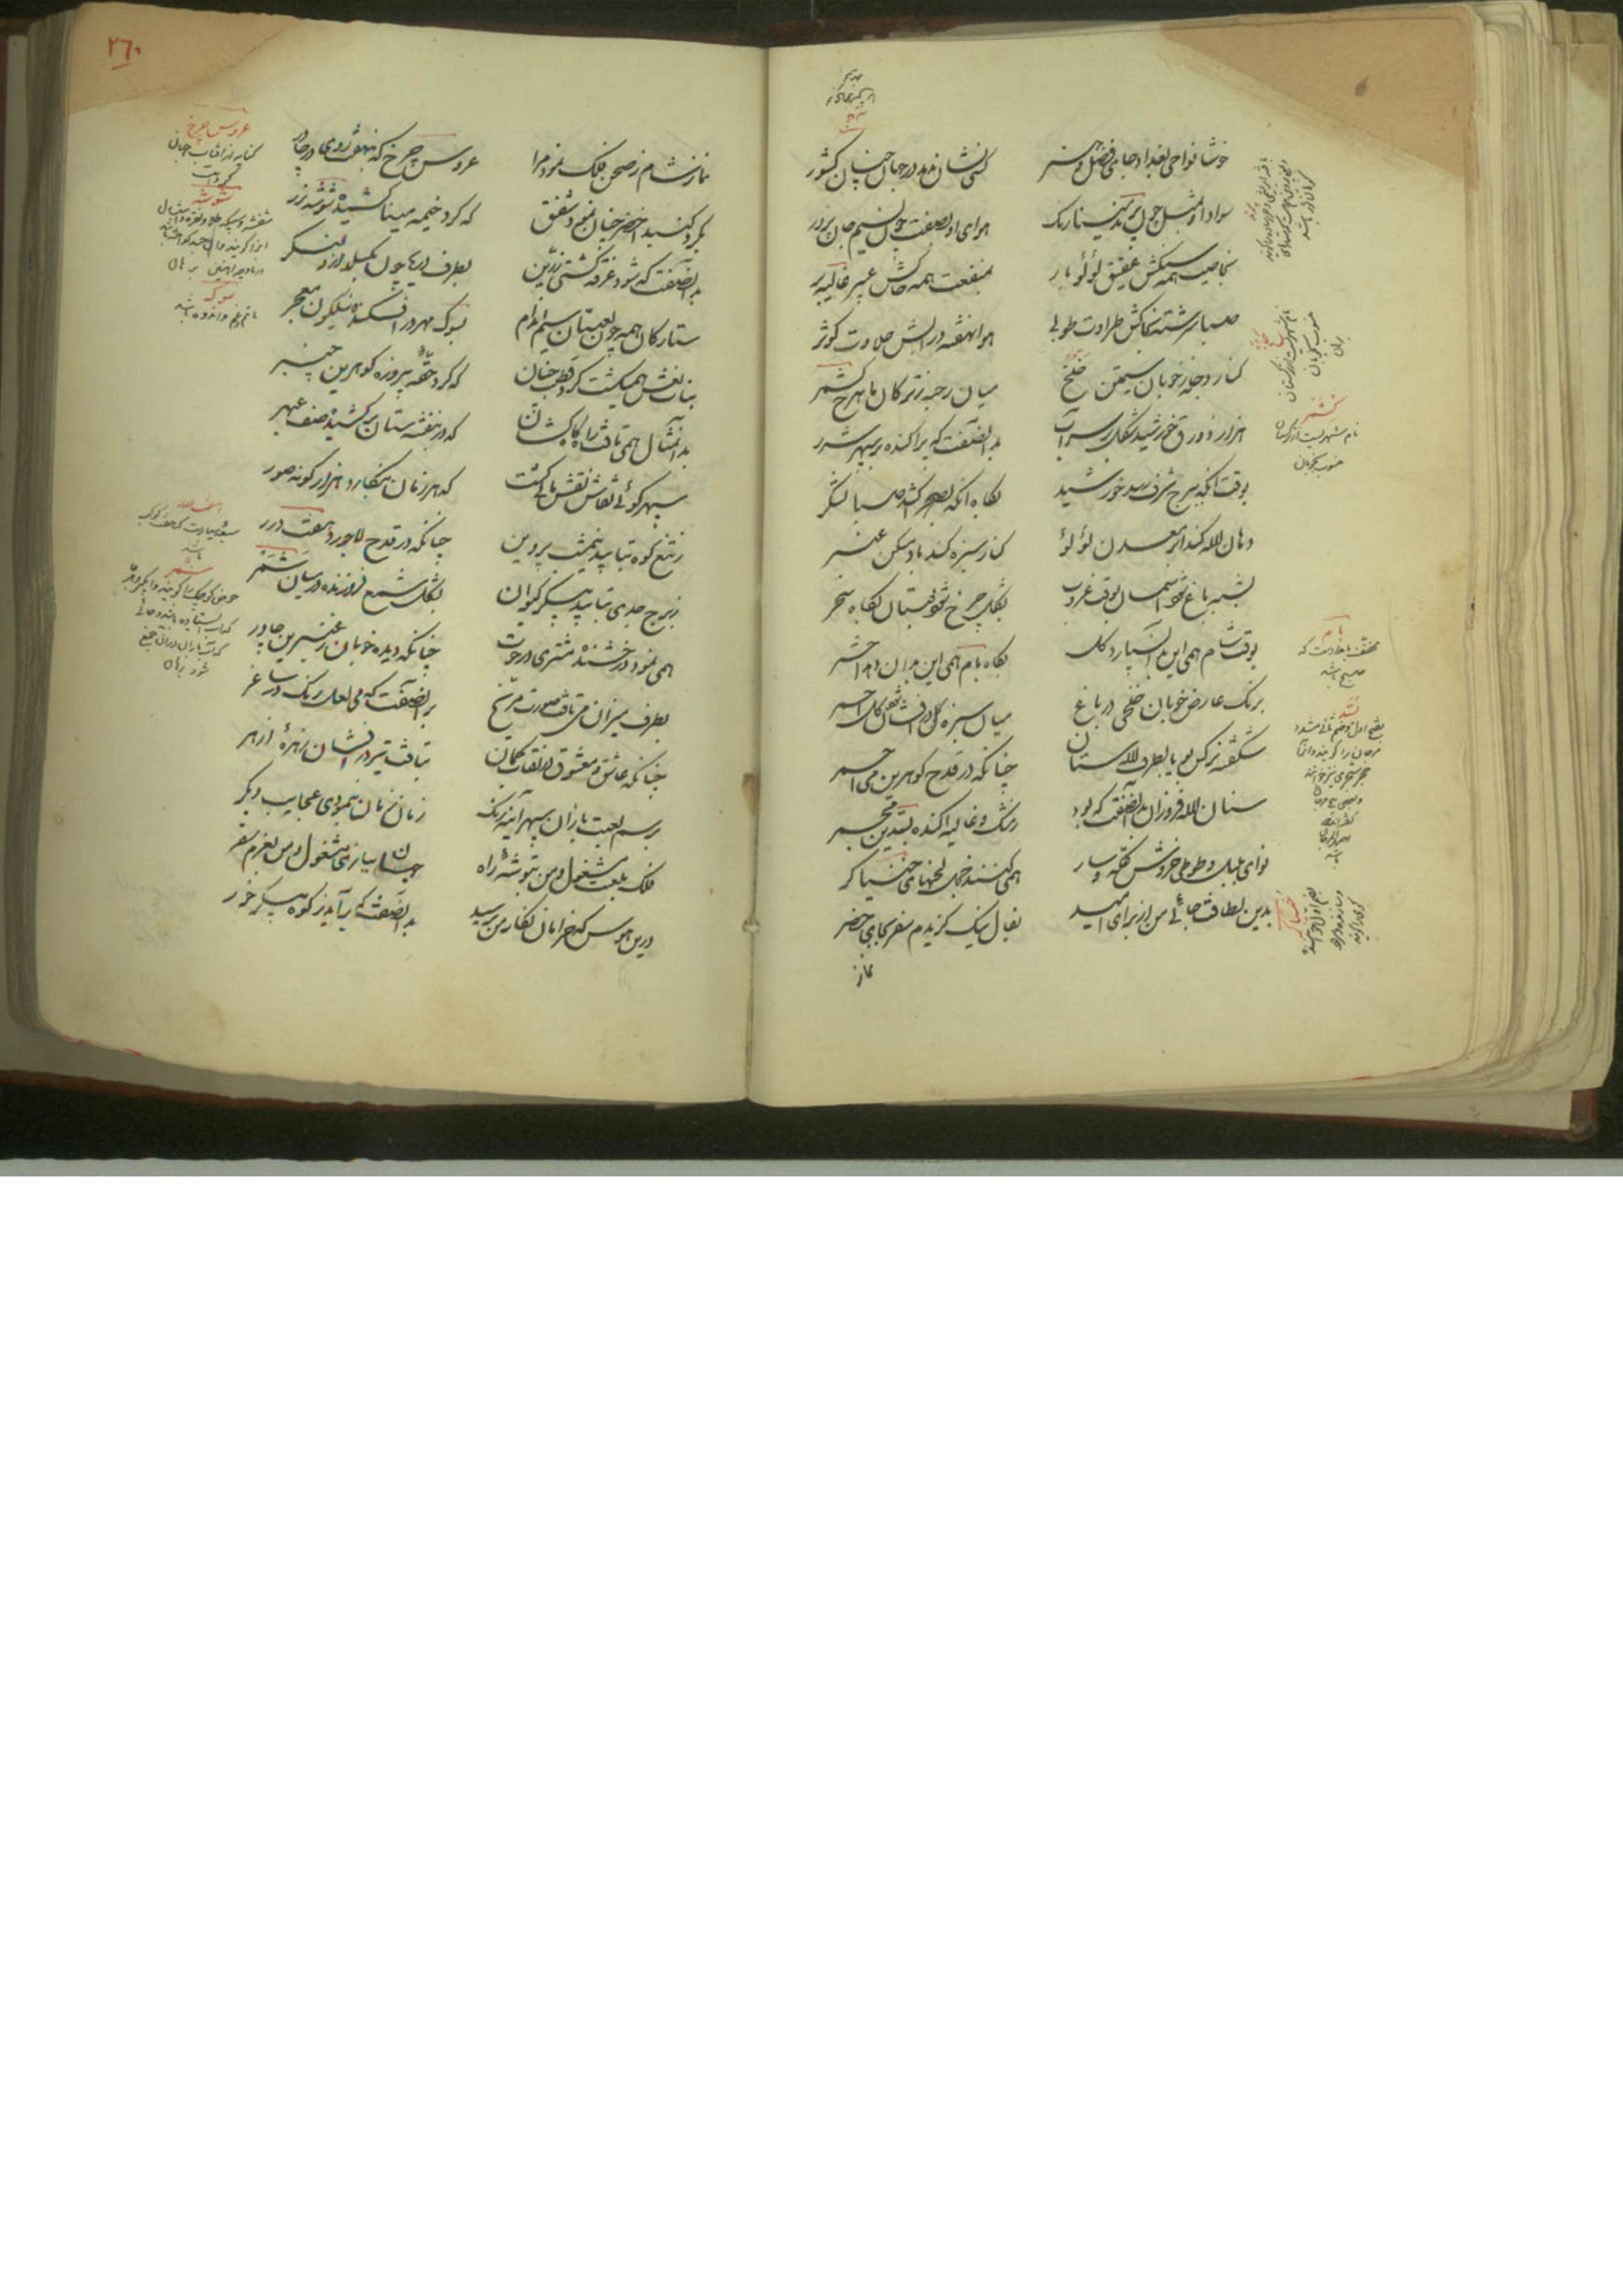 خوشا نواحی بغداد جای فضل و هنر
کسی نشان ندهد در جهان چنان کشور
سواد او بمثل چون پرند مینا رنگ
هوای او بصفت چون نسیم جان پرور
بخاصیت همه سنگش عقیق لؤلؤ بار
بمنفعت همه خاکش عبیر غالیه بر
صبا سرشته بخاکش طراوت طوبی
هوا نهفته در آبش حلاوت کوثر
کنار دجله ز خوبان سیمتن خلخ
میان رحبه ز ترکان ماهرخ کشمر
هزار زورق خورشید شکل بر سر آب
بدانصفت که پراکنده بر سپهر شرر
بوقت آنکه ببرج شرف رسد خورشید
بگاه آنکه بصحرا کشد صبا لشکر
دهان لاله کند ابر معدن لؤلؤ
کنار سبزه کند باد مسکن عنبر
بشبه باغ شود آسمان بوقت غروب
بشکل چرخ شود بوستان بگاه سحر
بوقت شام همی این بدان سپارد گل
بگاه بام همی این بدان دهد اختر
برنگ عارض خوبان خلخی در باغ
میان سبزه درفشان شود گل احمر
شکفته نرگس بویا بطرف لالستان
چنانکه در قدح گوهرین می احمر
ستان لاله فروزان بدانصفت که بود
ز مشک و غالیه آکنده بسدین مجمر
نوای بلبل و طوطی خروش عکه و سار
همی کنند خجل لحنهای خنیاگر
بدین لطافت جائی من از برای امید
بفال نیک گزیدم سفر بجای حضر
نماز
۲۶۰
نماز شام ز صحن فلک نمود مرا
عروس چرخ که بنهفت روی در چادر
بگرد گنبد اخضر چنان نمود شفق
که گرد خیمه مینا کشیده شوشه زر
بدانصفت که شود غرقه کشتی زرین
بطرف دریا چون بگسلد ازو لنگر
ستارگان همه چون لعبتان سیم اندام
بسوک مهر در افکنده نیلگون معجر
بنات نعش همی گشت گرد قطب چنان
که گرد حقه پیروزه گوهرین چنبر
بدانمثال همی تافت راه کاهکشان
که در بنفشه ستان بر کشیده صف عبهر
سپهر گوئی نقاش نقش مانی گشت
که هر زمان بنگارد هزار گونه صور
ز تیغ کوه بتابید نیمشب پروین
چنانکه در قدح لاجورد هفت درر
ز برج جدی بتابید پیکر کیوان
بشکل شمع فروزنده در میان شمر
همی نمود درخشنده مشتری در حوت
چنانکه دیده خوبان ز عنبرین چادر
بطرف میزان می تافت صورت مریخ
بدانصفت که می لعل رنگ در ساغر
چنانکه عاشق و معشوق در نقاب گمان
بتافت تیر درفشان و زهره ازهر
برسم لعبت بازان سپهر آینه رنگ
زمان زمان بنمودی عجایب دیگر
فلک بلعبت مشغول و من بتوشه راه
جهان ببازی مشغول و من بعزم سفر
درین هوس که خرامان نگار من برسید
بدانصفت که برآید ز کوه پیکر خور
عروس چرخ
کنایه از آفتاب جهان
گرد است
شوشه
سوک
ماتم و غم و اندوه باشد
شمر
کشمر
نام شهریست از ترکستان
منسوب بخوبان
بام